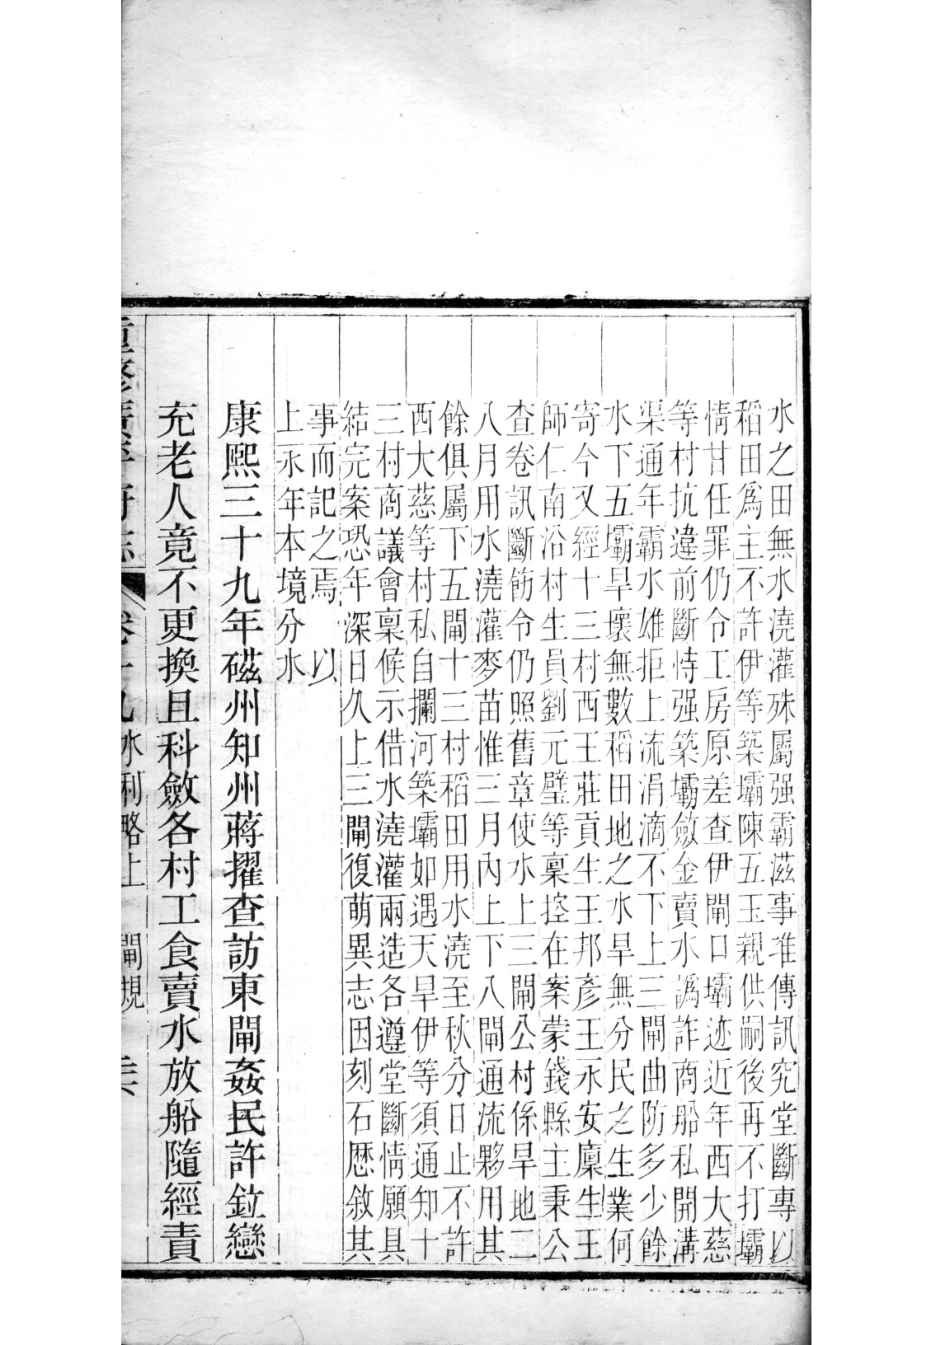 水之田無水澆灌殊屬强霸滋事准傳訊究堂斷專以
稻田爲主不許伊等築壩陳五玉親供嗣後再不打壩
情甘任罪仍令工房原差查伊閘口壩迹近年西大慈
等村抗違前斷恃强築壩斂金賣水譌詐商船私開溝
渠通年霸水雄拒上流涓滴不下上三閘曲防多少餘
水下五壩旱壞無數稻田地之水旱無分民之生業何
寄今又經十三村西王莊貢生王邦彥王永安廩生王
師仁南沿村生員劉元璧等稟控在案蒙錢縣主秉公
查卷訊斷飭令仍照舊章使水上三閘公村係旱地二
八月用水澆灌麥苗惟三月內上下八閘通流夥用其
餘俱屬下五閘十三村稻田用水澆至秋分日止不許
西大慈等村私自攔河築壩如遇天旱伊等須通知十
三村商議會稟候示借水澆灌兩造各遵堂斷情願具
結完案恐年深日久上三閘復萌異志因刻石歷敘其
事而記之焉　以
上永年本境分水
康熙三十九年磁州知州蔣擢查訪東閘姦民許鈜戀
充老人竟不更換且科斂各村工食賣水放船隨經責
重修廣平府志　卷十九　水利略上　閘規